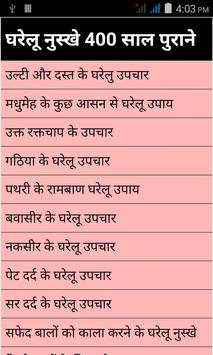 4:03 PM
घरेलू नुस्खे 400 साल पुराने
उल्टी और दस्त के घरेलु उपचार
मधुमेह के कुछ आसन से घरेलू उपाय
उक्त रक्तचाप के उपचार
गठिया के घरेलू उपचार
पथरी के रामबाण घरेलू उपाय
बवासीर के घरेलू उपचार
नकसीर के घरेलू उपचार
पेट दर्द के घरेलू उपचार
सर दर्द के घरेलू उपचार
सफेद बालों को काला करने के घरेलू नुस्खे